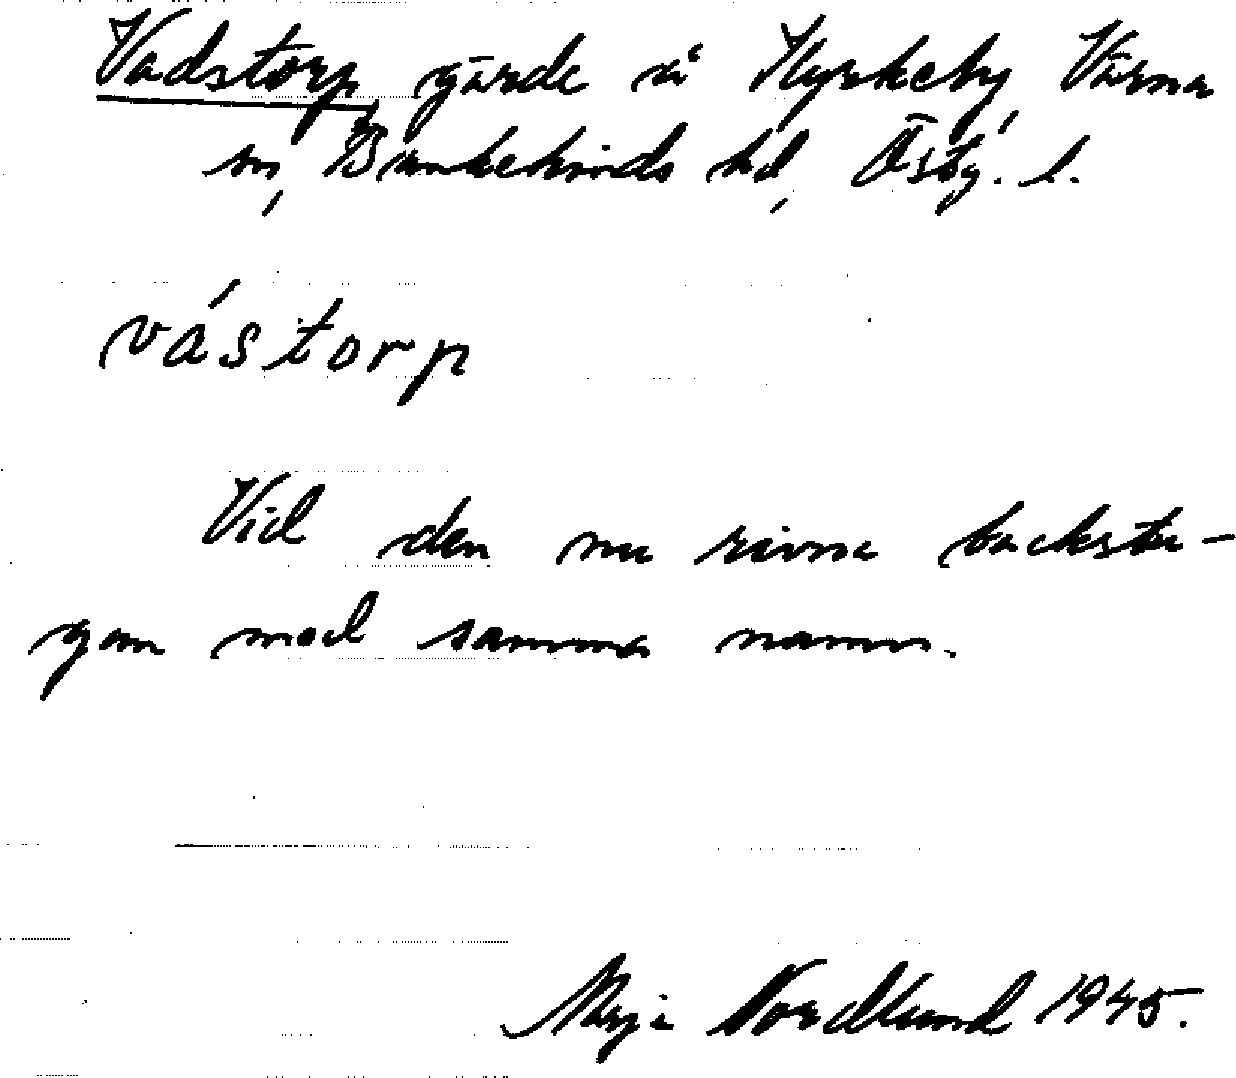 Vadstorp gärde å Kyrkeby, Värna
sn, Bankekinds hd, Östg. l.
vástorp
Vid den nu rivna backstu-
gan med samma namn.
Maja Nordlund 1945.